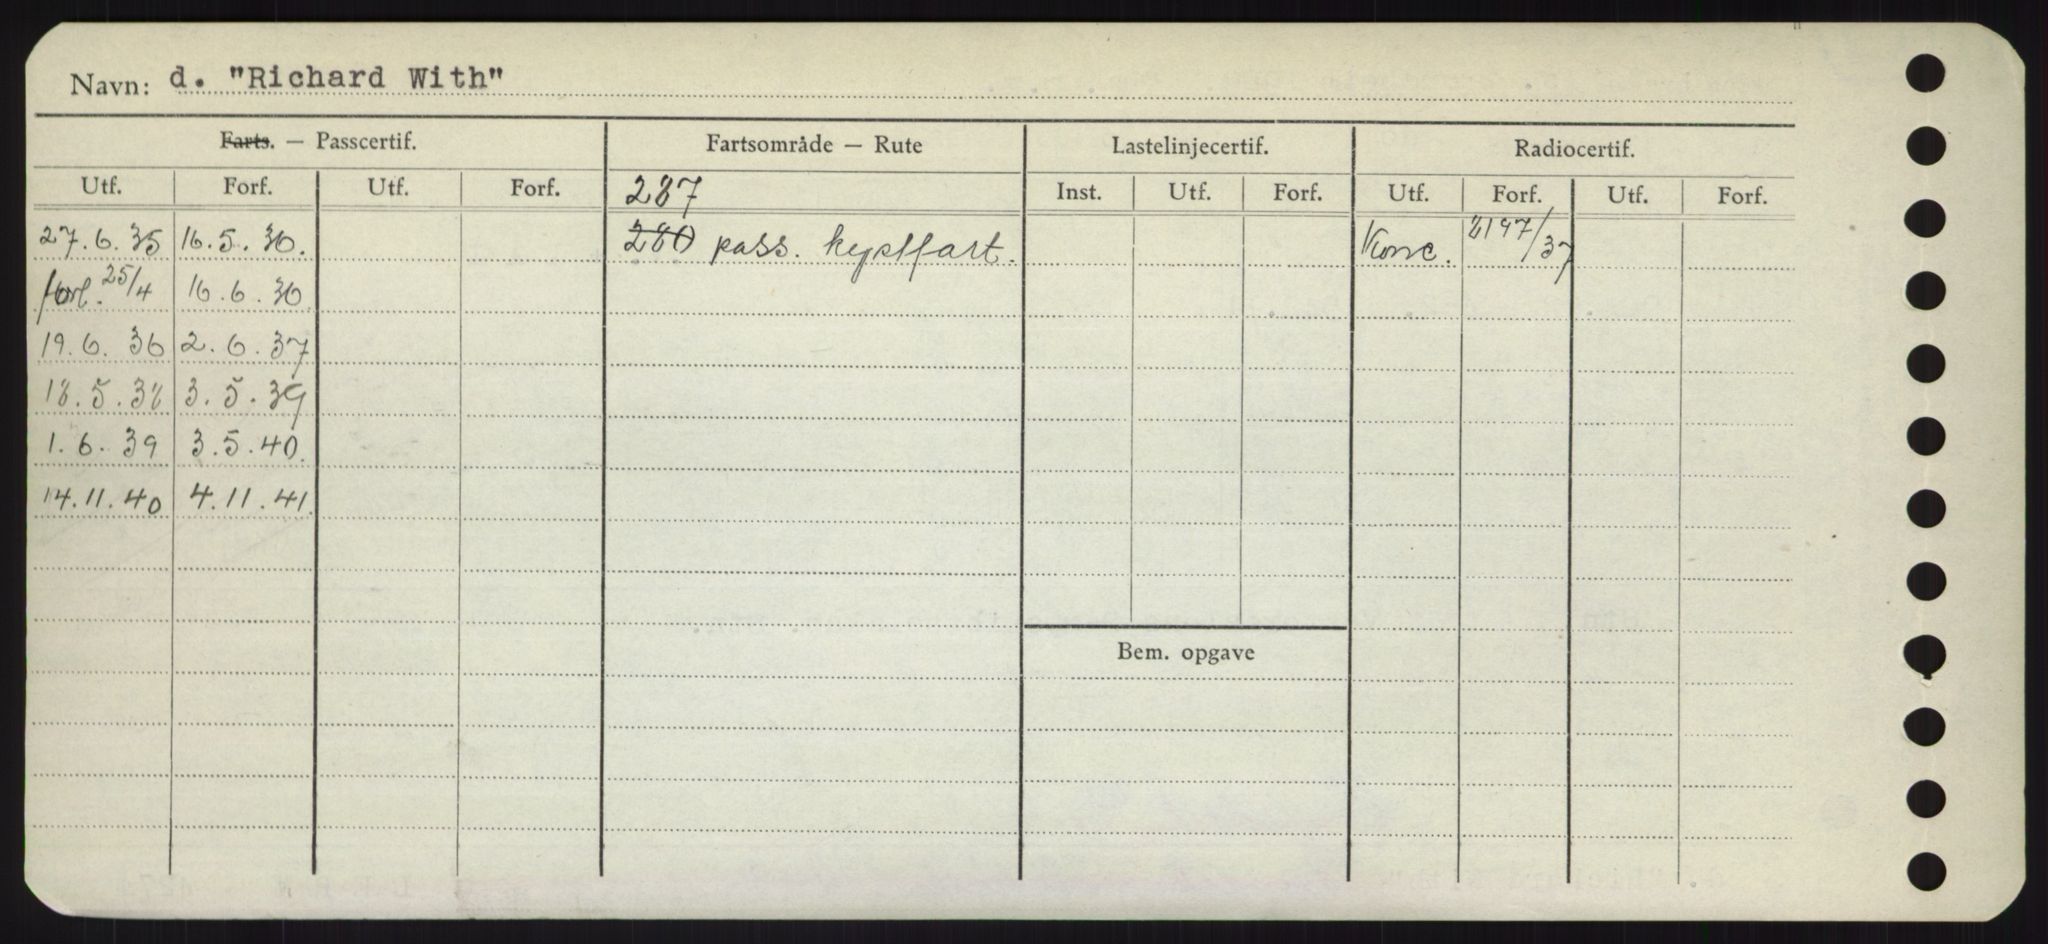 Navn: d. "Richard With"
Farts. — Passcertif. Fartsområde — Rute Lastelinjecertif. Radiocertif.
Utf. Forf. Utf. Forf. 287 Inst. Utf. Forf. Utf. Forf. Utf. Forf.
27.6.35 16.5.36. 280 pass. kystfart. Konc. 2197/37
forl. 25/4 16.6.36
19.6.36 2.6.37
18.5.38 3.5.39
1.6.39 3.5.40
14.11.40 4.11.41.
Bem. opgave